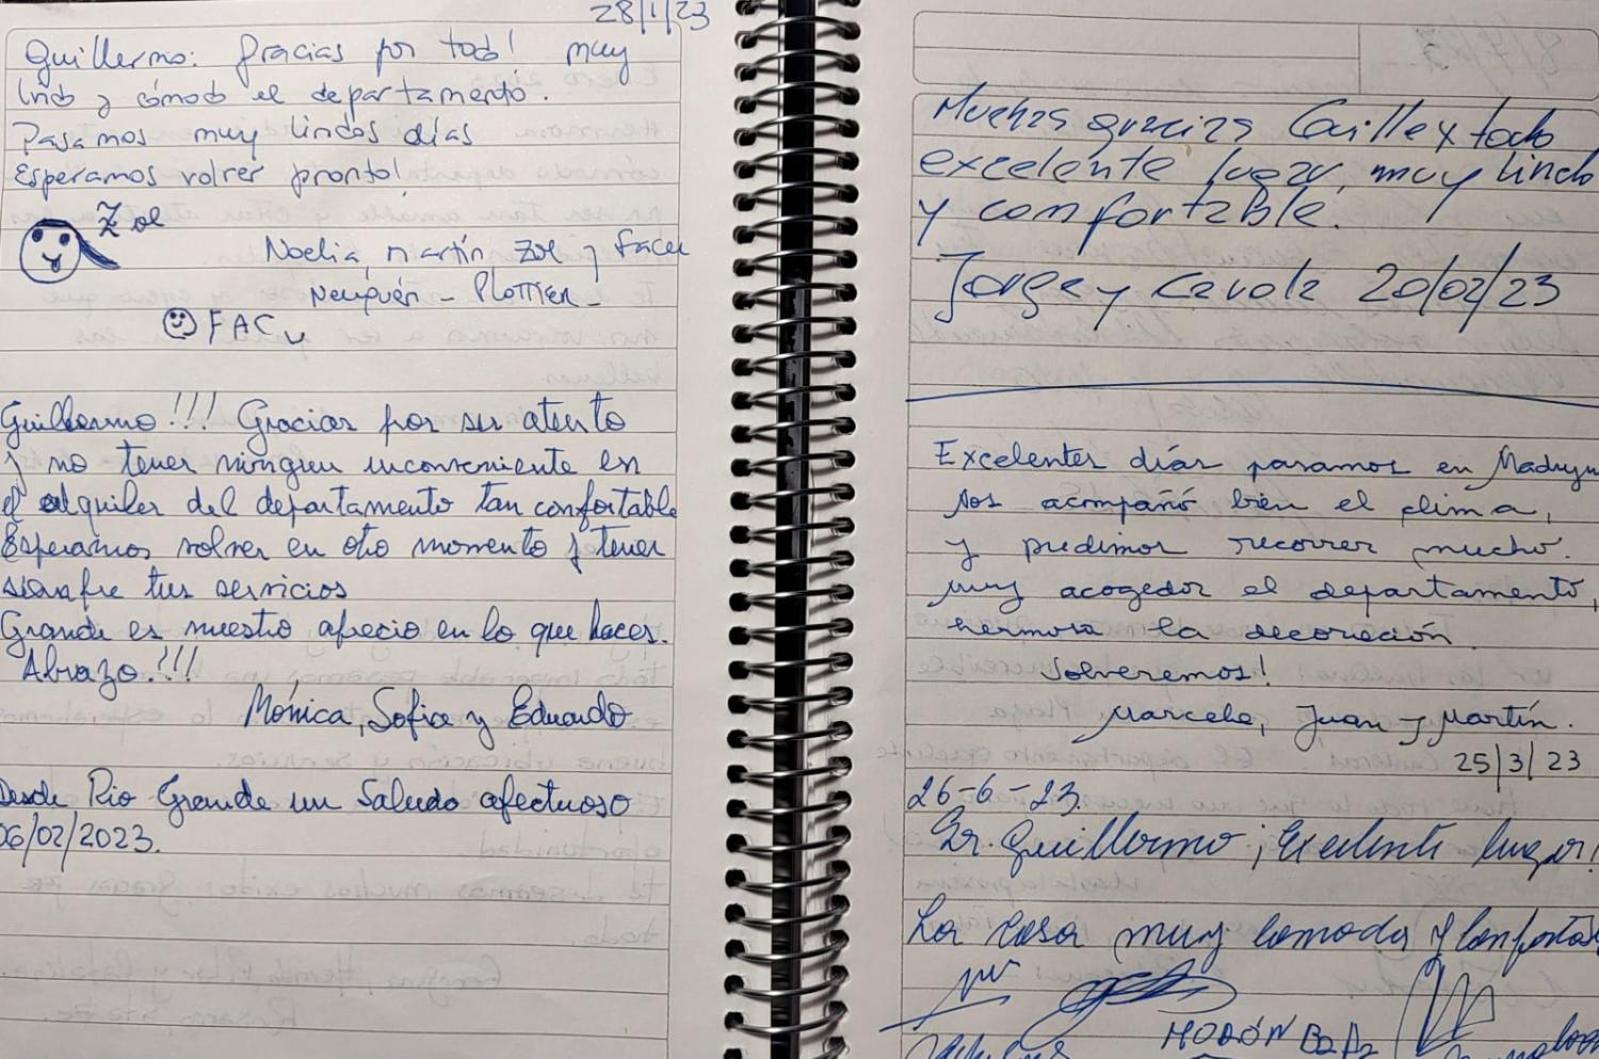 28/1/23
Guillermo: Gracias por todo! muy
lindo y cómodo el departamento.
Pasamos muy lindos días
Esperamos volver pronto!
Zoe
Noelia, Martín Zoe y Facu
Neuquén - Plottier -
FACU
Guillermo!!! Gracias por ser atento
y no tener ningun inconveniente en
el alquiler del departamento tan confortable
Esperamos volver en otro momento y tener
siempre tus servicios
Grande es nuestro aprecio en lo que haces.
Abrazo.!!!
Mónica, Sofia y Eduardo
Desde Rio Grande un Saludo afectuoso
06/02/2023.
Muchas gracias Guille x todo
excelente lugar, muy lindo
y comfortable.
Jorge y Carola 20/02/23
Excelentes días pasamos en Madryn
Nos acompañó bien el clima,
y pudimos recorrer mucho.
muy acogedor el departamento,
hermosa la decoración.
Volveremos!
Marcela, Juan y Martín.
25/3/23
26-6-23.
Sr. Guillermo; Excelente lugar!
La casa muy comoda y confortable
MORÓN